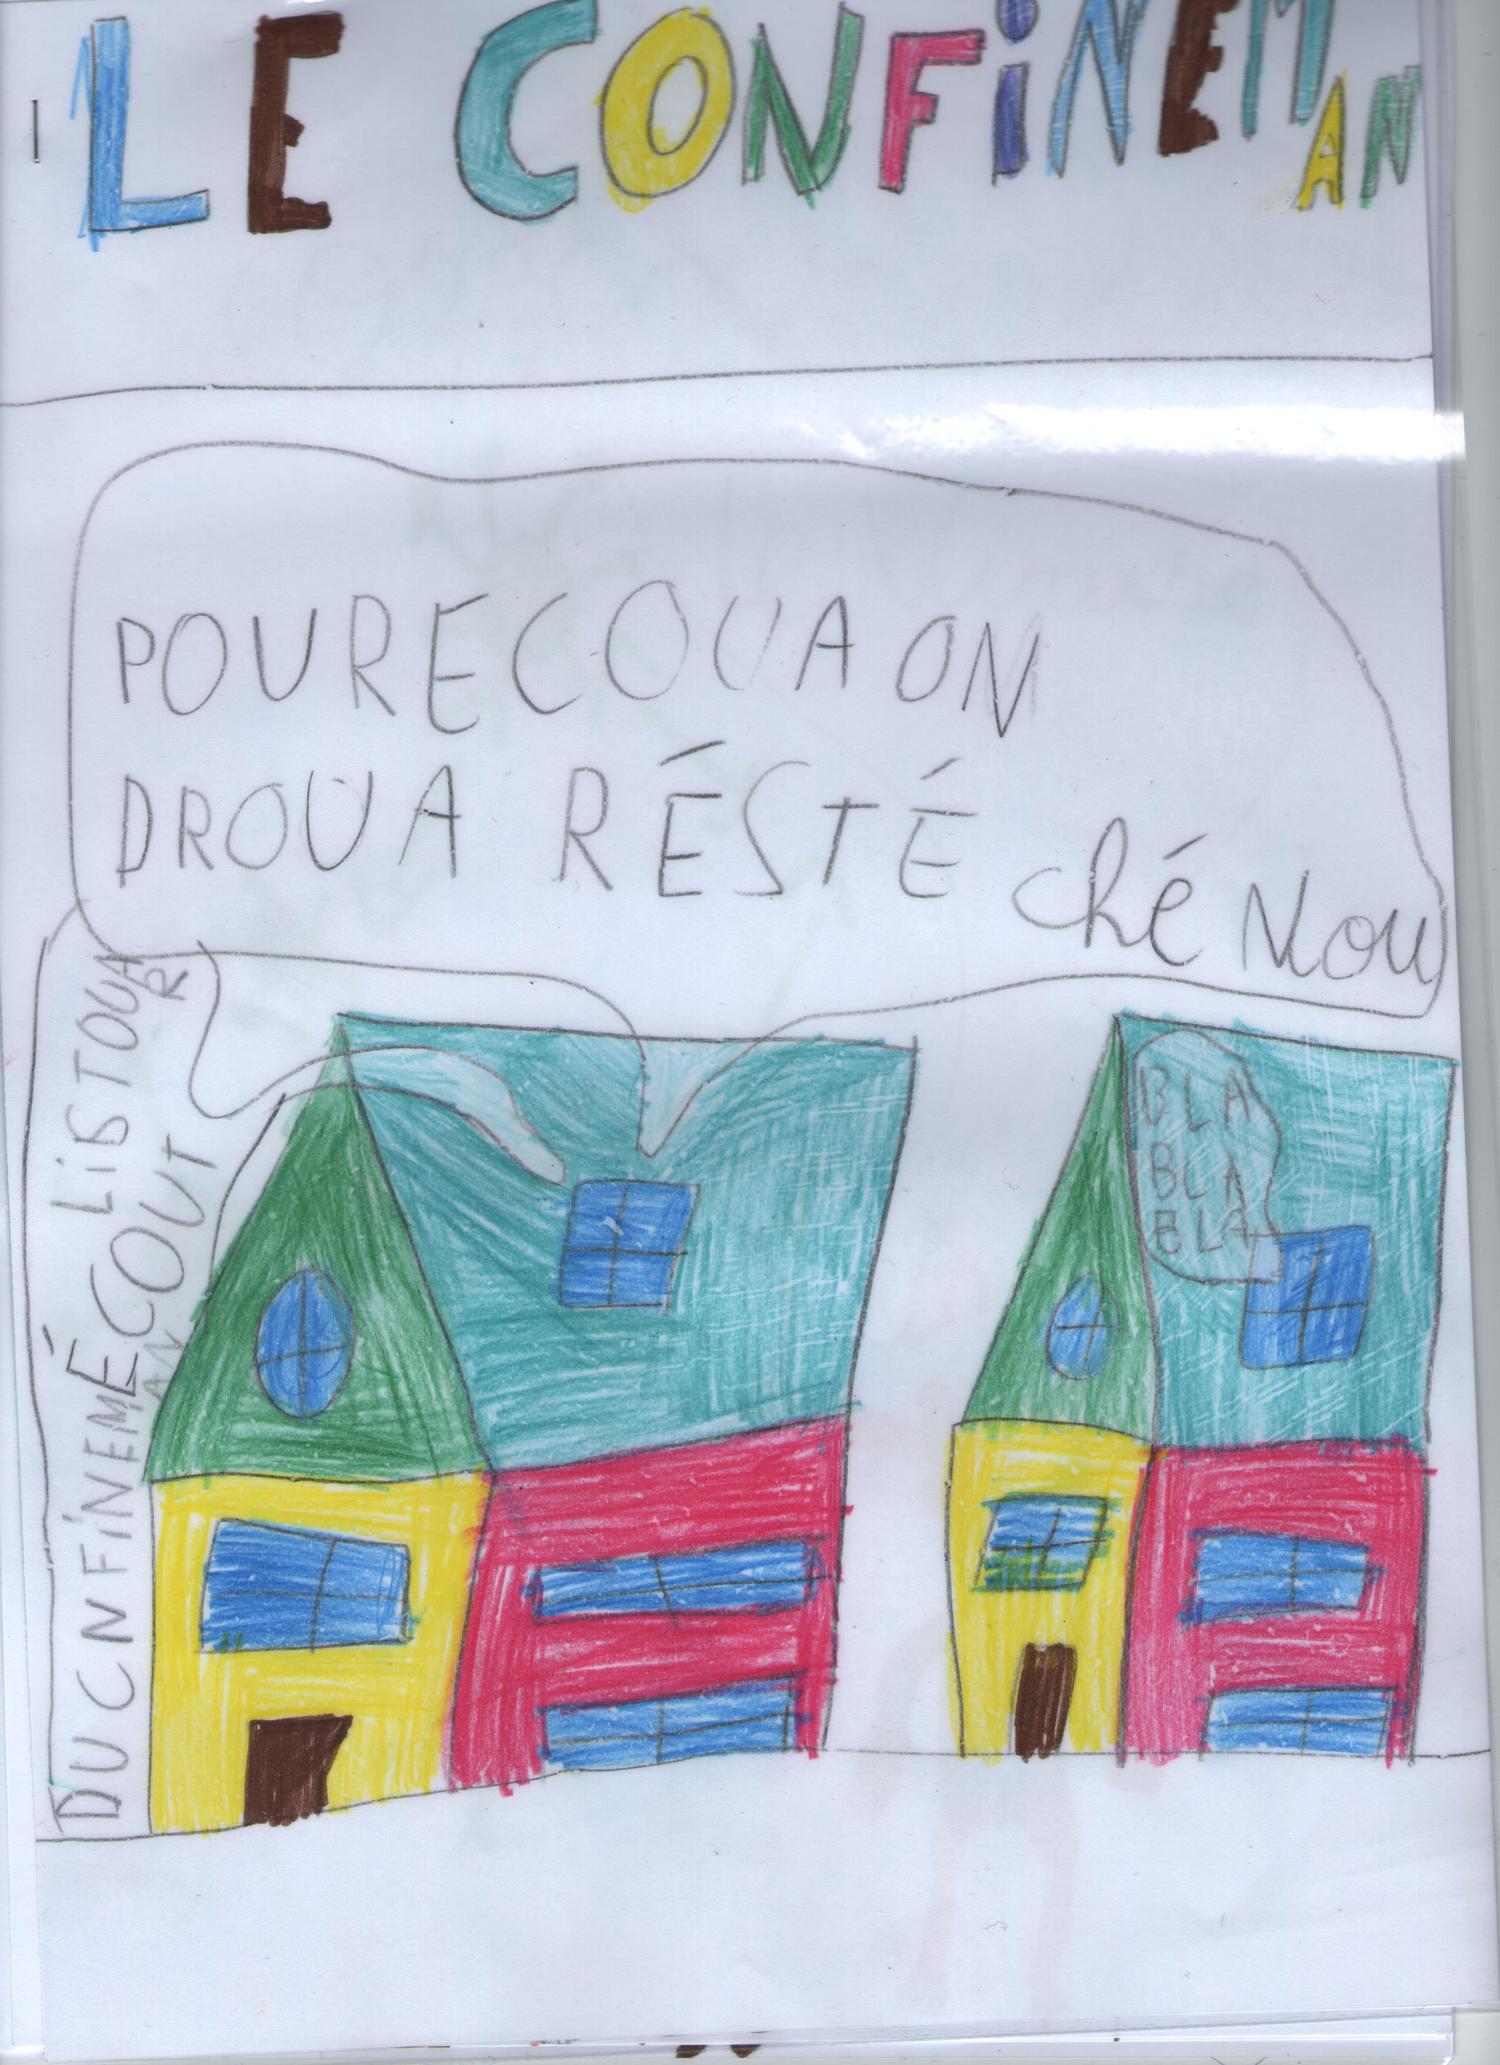 LE CONFiNEMAN
POURECOUA ON
DROUA RÉSTÉ ché Nou
ÉCOUT
LiSTOUAR
DU CNFiNEMAN
BLA
BLA
BLA